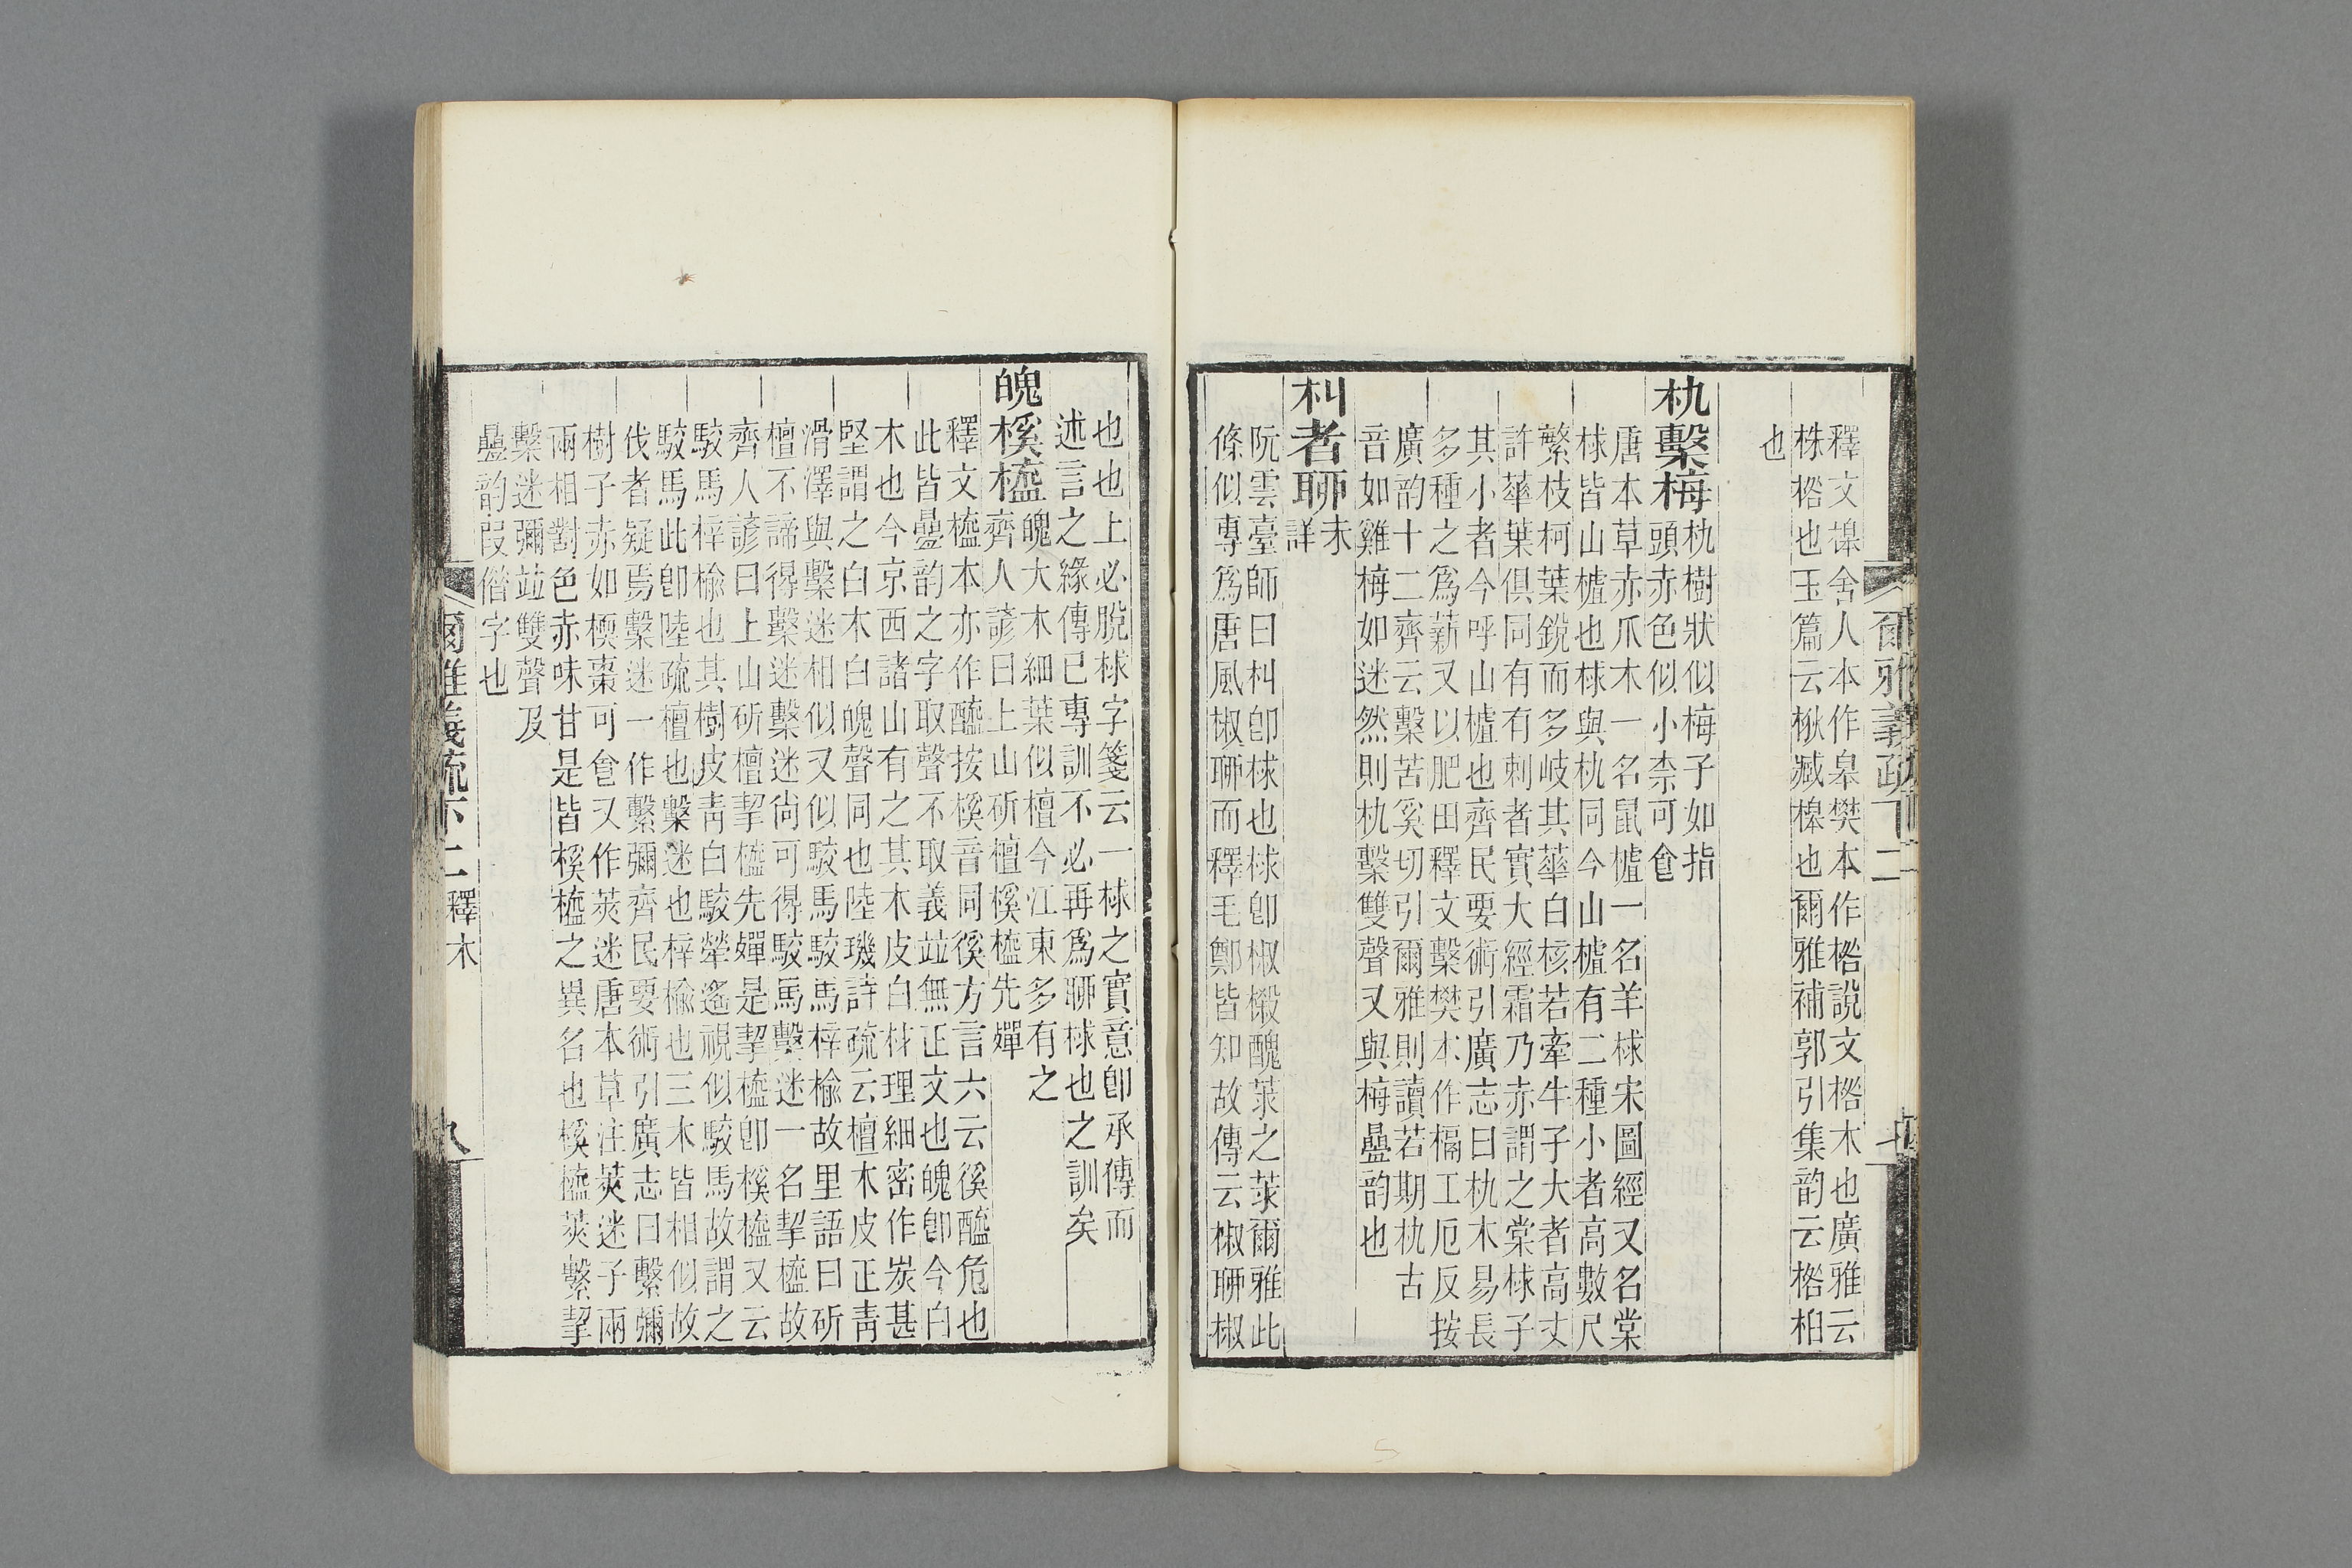 釋文㯱舍人本作皋樊本作楁說文楁木也廣雅云
株楁也玉篇云楸臧槔也爾雅補郭引集韵云楁柏
也
朹檕梅
朹樹狀似梅子如指
頭赤色似小柰可㑹
唐本草赤爪木一名鼠櫨一名羊梂宋圖經又名棠
梂皆山樝也梂與朹同今山樝有二種小者高數尺
繁枝柯葉銳而多岐其蕐白核若牽牛子大者高丈
許蕐葉俱同有有刺者實大經霜乃赤謂之棠梂子
其小者今呼山樝也齊民要術引廣志曰朹木易長
多種之爲薪又以肥田釋文檕樊本作槅工厄反按
廣韵十二齊云檕苦奚切引爾雅則讀若期朹古
音如雞梅如迷然則朹檕雙聲又與梅曡韵也
朻者聊
未
詳
阮雲臺師曰朻卽梂也梂卽椒樧醜莍之莍爾雅此
條似專爲唐風椒聊而釋毛鄭皆知故傳云椒聊椒
也也上必脫梂字箋云一梂之實意卽承傳而
述言之緣傳已專訓不必再爲聊梂也之訓矣
魄榽橀
魄大木細葉似檀今江東多有之
齊人諺曰上山斫檀榽橀先殫
釋文橀本亦作醯按榽音同徯方言六云徯醯危也
此皆曡韵之字取聲不取義竝無正文也魄卽今白
木也今京西諸山有之其木皮白材理細密作炭甚
堅謂之白木白魄聲同也陸璣詩疏云檀木皮正靑
滑澤與檕迷相似又似駮馬駮馬梓榆故里語曰斫
檀不諦得檕迷檕迷尙可得駮馬檕迷一名挈橀故
齊人諺曰上山斫檀挈橀先殫是挈橀卽榽橀又云
駮馬梓榆也其樹皮靑白駮犖遙視似駮馬故謂之
駮馬此卽陸疏檀也檕迷也梓榆也三木皆相似故
伐者疑焉檕迷一作繫彌齊民要術引廣志曰繫彌
樹子赤如楔棗可㑹又作莢迷唐本草注莢迷子兩
兩相對色赤味甘是皆榽橀之異名也榽橀莢繫挈
檕迷彌竝雙聲及
曡韵叚借字也
爾雅義疏下二釋木
九
爾雅義疏下二